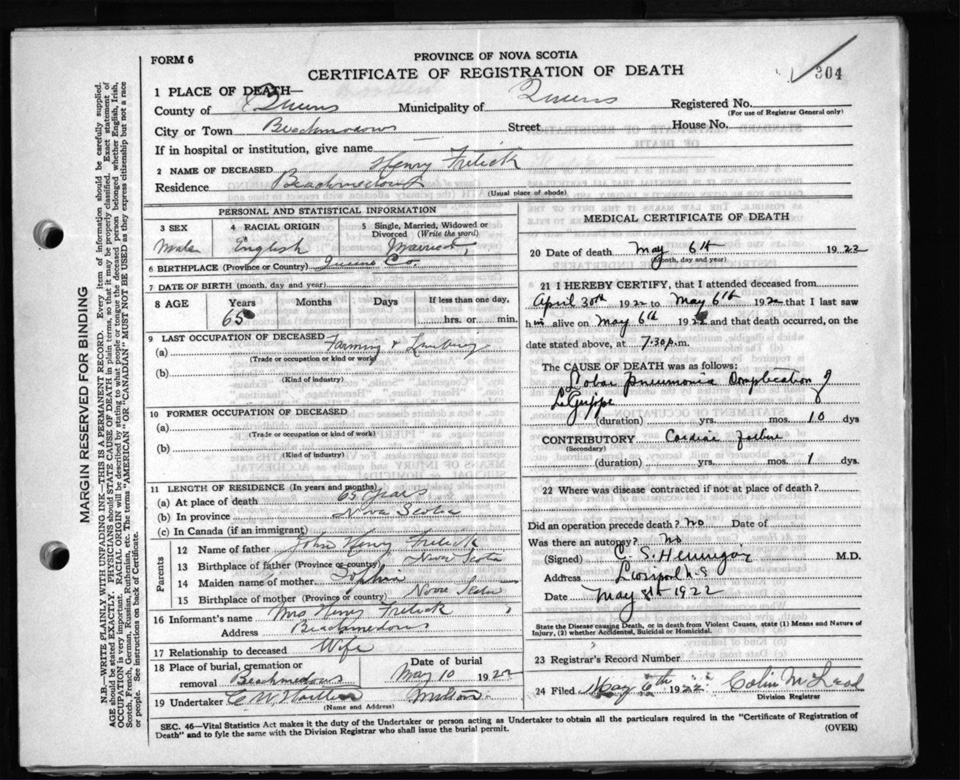 FORM 6
PROVINCE OF NOVA SCOTIA
CERTIFICATE OF REGISTRATION OF DEATH
304
1 PLACE OF DEATH—
County of Queens Municipality of Queens Registered No.
(For use of Registrar General only)
City or Town Beachmedows Street House No.
If in hospital or institution, give name —
2 NAME OF DECEASED Henry Frelick
Residence Beachmedows
(Usual place of abode)
PERSONAL AND STATISTICAL INFORMATION
3 SEX 4 RACIAL ORIGIN 5 Single, Married, Widowed or Divorced (Write the word)
Male English Married
6 BIRTHPLACE (Province or Country) Queens Co.
7 DATE OF BIRTH (month, day and year)
8 AGE Years Months Days If less than one day,
65 hrs. or min.
9 LAST OCCUPATION OF DECEASED
(a) Farming &
(Trade or occupation or kind of work)
(b)
(Kind of industry)
10 FORMER OCCUPATION OF DECEASED
(a)
(Trade or occupation or kind of work)
(b)
(Kind of industry)
11 LENGTH OF RESIDENCE (In years and months)
(a) At place of death 65 years
(b) In province Nova Scotia
(c) In Canada (if an immigrant)
Parents
12 Name of father John Henry Frelick
13 Birthplace of father (Province or country) Nova Scotia
14 Maiden name of mother Sophia
15 Birthplace of mother (Province or country) Nova Scotia
16 Informant's name Mrs Henry Frelick
Address Beachmedows
17 Relationship to deceased Wife
18 Place of burial, cremation or removal Beachmedows Date of burial May 10 1922
19 Undertaker C W Milton
(Name and Address)
MEDICAL CERTIFICATE OF DEATH
20 Date of death May 6th 1922
(Month, day and year)
21 I HEREBY CERTIFY, that I attended deceased from
April 30th 1922 to May 6th 1922 that I last saw
him alive on May 6th 1922 and that death occurred, on
date stated above, at 7.30 p.m.
The CAUSE OF DEATH was as follows:
Lobar pneumonia Complication of
La Grippe
(duration) yrs. mos. 10 dys
CONTRIBUTORY Cardiac failure
(Secondary)
(duration) yrs. mos. 1 dys.
22 Where was disease contracted if not at place of death?
Did an operation precede death? no Date of
Was there an autopsy? no
(Signed) C. S. Hennigar M.D.
Address Liverpool N.S
Date May 8th 1922
State the Disease causing Death, or in death from Violent Causes, state (1) Means and Nature of Injury, (2) whether Accidental, Suicidal or Homicidal.
23 Registrar's Record Number
24 Filed May 6th 1922 Colin McLeod
Division Registrar
SEC. 46—Vital Statistics Act makes it the duty of the Undertaker or person acting as Undertaker to obtain all the particulars required in the "Certificate of Registration of
Death" and to fyle the same with the Division Registrar who shall issue the burial permit. (OVER)
MARGIN RESERVED FOR BINDING
N.B.—WRITE PLAINLY WITH UNFADING INK—THIS IS A PERMANENT RECORD. Every item of information should be carefully supplied.
AGE should be stated EXACTLY. PHYSICIANS should STATE CAUSE OF DEATH in plain terms, so that it may be properly classified. Exact statement of
OCCUPATION is very important. RACIAL ORIGIN will be described by stating to what people or tongue the deceased person belonged whether English, Irish,
Scotch, French, German, Russian, Ruthenian, etc. The terms "AMERICAN" OR "CANADIAN" MUST NOT BE USED as they express citizenship but not a race
or people. See instructions on back of Certificate.